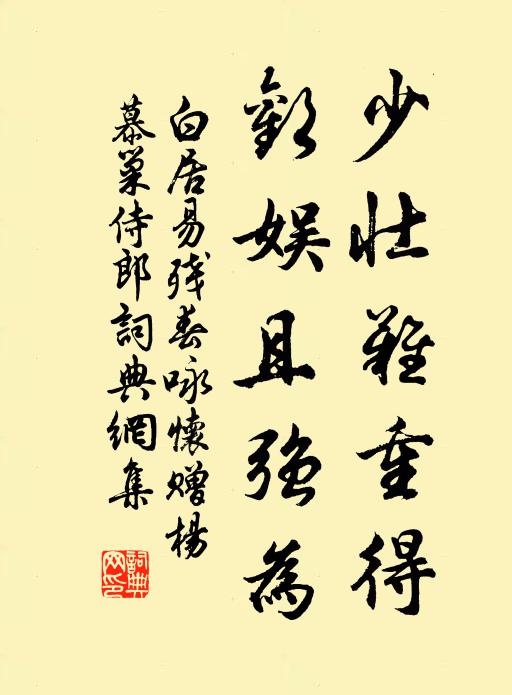 少壯難重得
歡娛且強為
白居易殘春咏懷贈楊
慕巢侍郎詞典網集
詞典网印